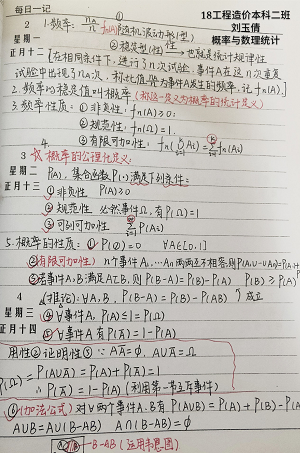 每日一记
18工程造价本科二班
刘玉倩
概率与数理统计
2 1.频率: n_A/n f_n(A) ①随机波动性(型)
星期一 ②稳定型(性) 也就是统计规律性
正月十二 [在相同条件下,进行了n次试验.事件A在这n次重复
试验中出现了n_A次,称比值 n_A/n 为事件A发生的频率,记f_n(A).]
2.频率的稳定值叫概率(称这一定义为概率的统计定义)
3.频率性质:①非负性:f_n(A)≥0;
②规范性:f_n(Ω)=1.
③有限可加性:
4.
3 ☆概率的公理化定义:
星期二 P(A),集合函数P(·)满足下列条件:
正月十三 ①非负性 P(A)≥0
②规范性 必然事件Ω,有P(Ω)=1
③可列可加性
5.概率的性质:①P(Ø)=0 ∀A∈[0,1]
②(有限可加性) n个事件A₁,…An两两互不相容,则P(A₁∪…∪An)=P(A₁)+
③若事件A,B满足A⊂B,则P(B-A)=P(B)-P(A) P(B)≥P(A)
4 △(推论):∀A,B,P(B-A)=P(B)-P(AB) ↑成立
星期三 ④∀事件A,P(A)≤1=P(Ω)
正月十四 ⑤∀事件A有P(Ā)=1-P(A)
用性②证明性⑤: ∵AĀ=Ø,A∪Ā=Ω
P(Ω)=P(A∪Ā)=P(A)+P(Ā)=1
∴P(Ā)=1-P(A)(利用第一节互斥事件)
⑥(加法公式)对∀两个事件A.B有P(A∪B)=P(A)+P(B)-P(A
A∪B=A∪(B-AB) A∩(B-AB)=Ø
B-AB(运用韦恩图)